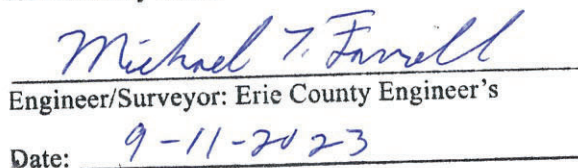 Michael T. Farrell
Engineer/Surveyor: Erie County Engineer's
Date: 9-11-2023